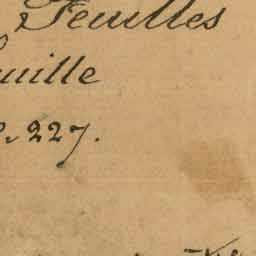 Feuilles
uille
227.